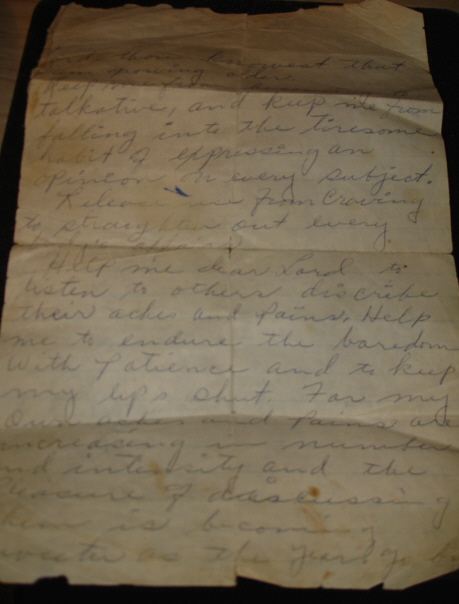 Lord, thou knowest that
I'm growing older.
Keep me from
talkative, and keep me from
falling into the tiresome
habit of expressing an
opinion on every subject.
Release me from craving
to straighten out every
affairs
Help me dear Lord to
listen to others discribe
their aches and pains. Help
me to endure the baredom
With Patience and to keep
my lips shut. For my
Own aches and Pains are
increasing in number
nd intensity and the
Pleasure of discussing
hem is becoming
weeter as the years go by